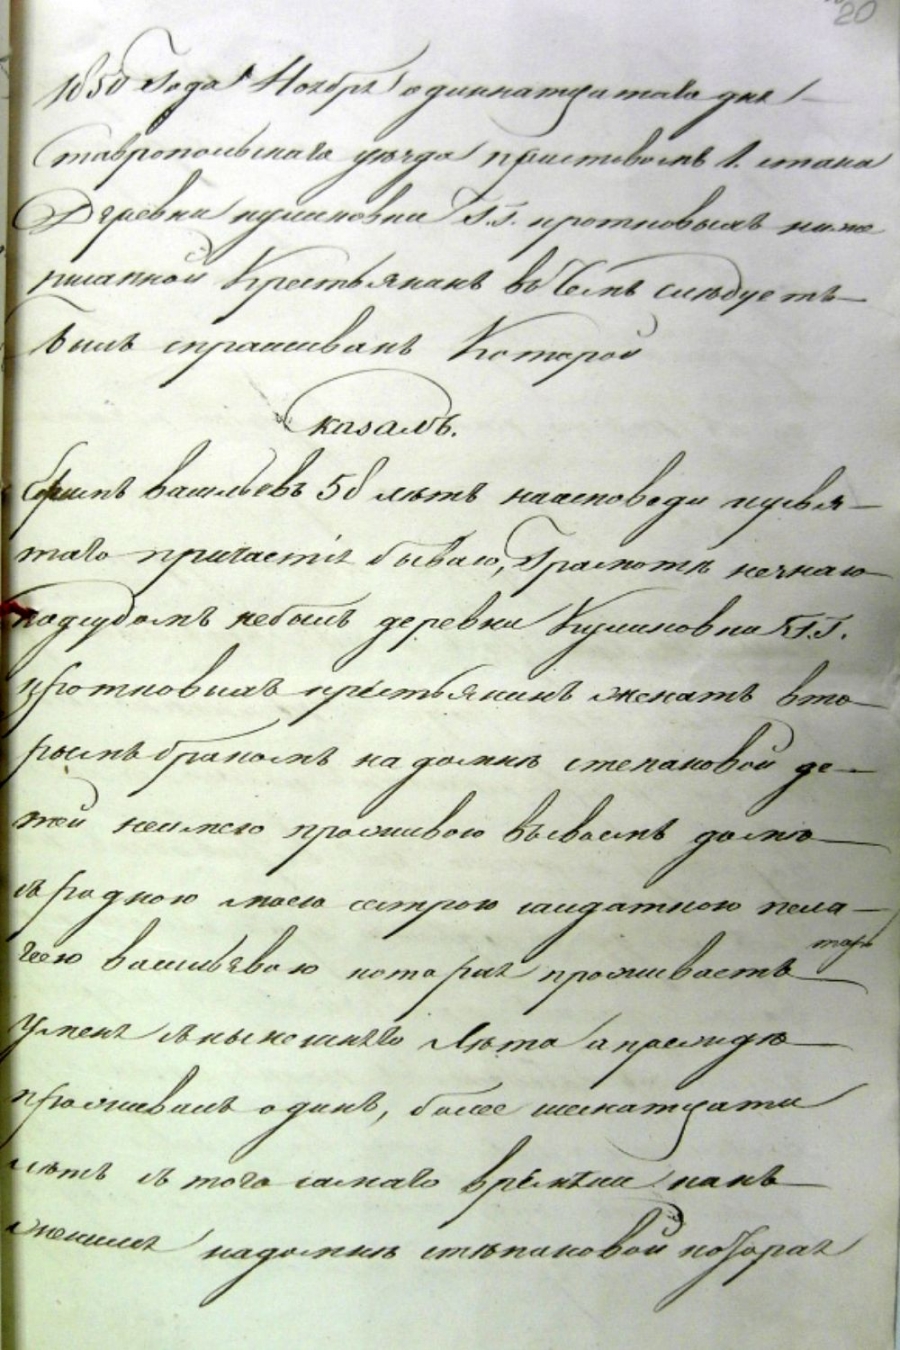 20
1850 Года Ноября одиннатцатаго дня
Ставропольскаго уезда приставомъ 1. стана
Деревни Куликовки Г.Г. протковыхъ ниже
писанной Крестьянинъ въ чемъ слѣдуетъ
былъ спрашиванъ Которой
показалъ.
васильевъ 58 лѣтъ наисповеди иусвя-
таго причастія бываю, Грамотѣ незнаю
подсудомъ небылъ деревни Куликовки Г.Г.
протковыхъ крестьянинъ женатъ вто-
рымъ бракомъ на домнѣ степановой де-
тей неимею проживаю въсвоемъ домѣ
съ родною моею сестрою салдаткою пела-
геею васильевою которая проживаетъ
Уменя съ нынешнего лѣта апрежде
проживалъ одинъ, более шеснатцати
лѣтъ съ того самаго времѣни какъ
женился надомнѣ стѣпановой которая